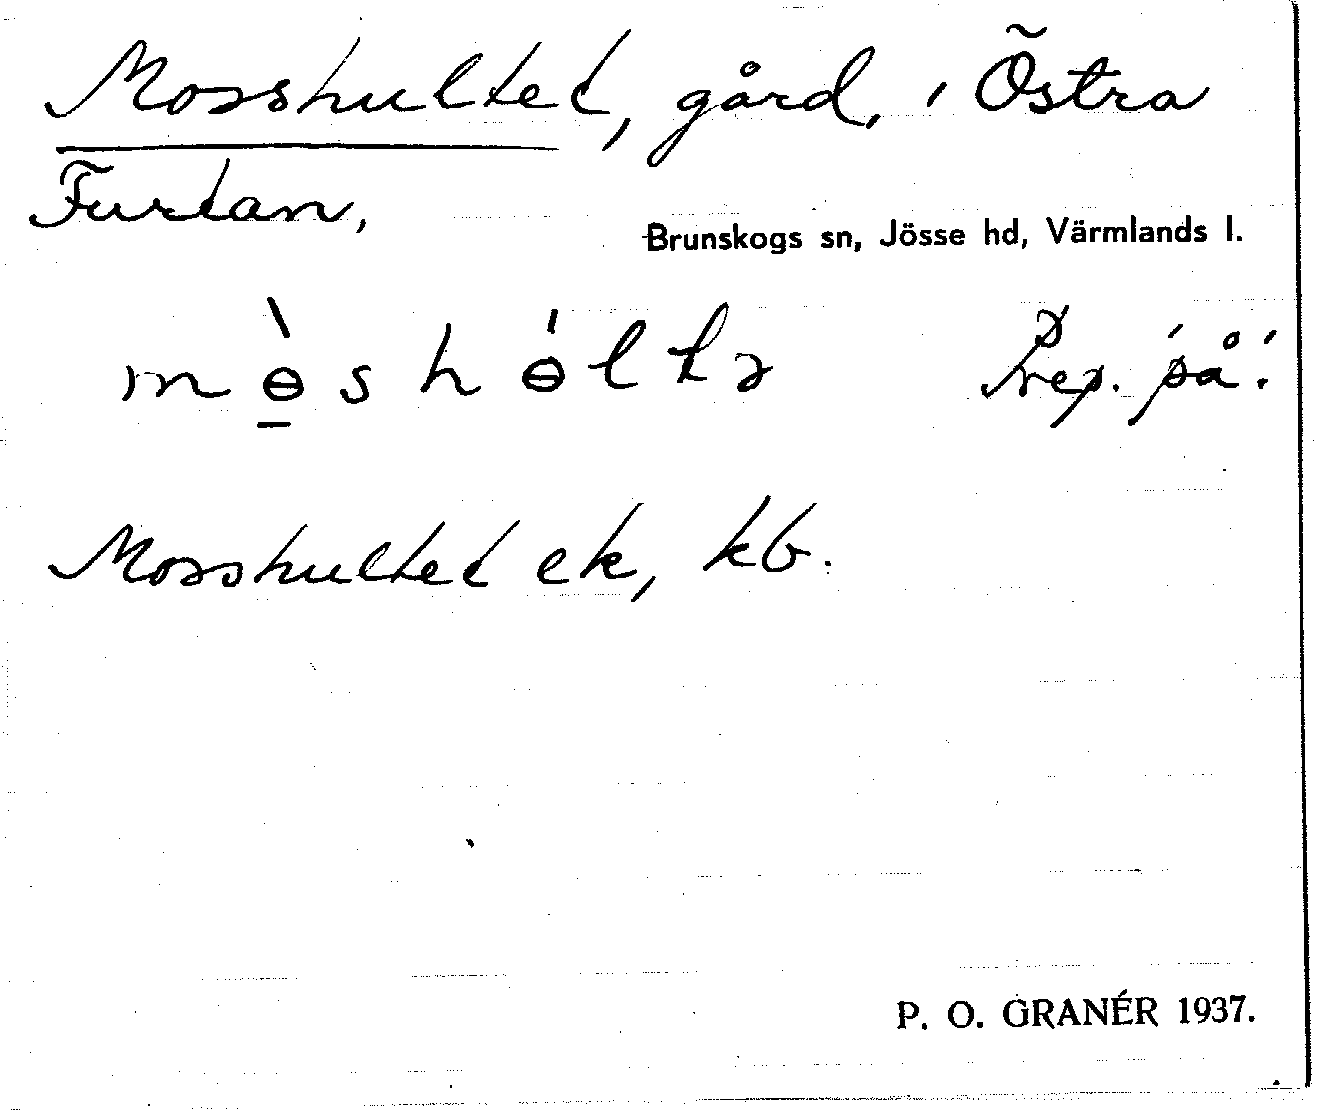 Mosshultet, gård, i Östra
Furtan,
Brunskogs sn, Jösse hd, Värmlands l.
mɵ̀s hɵ́ltə Prep. 'på'.
Mosshultet ek, kb.
P. O. GRANÉR 1937.